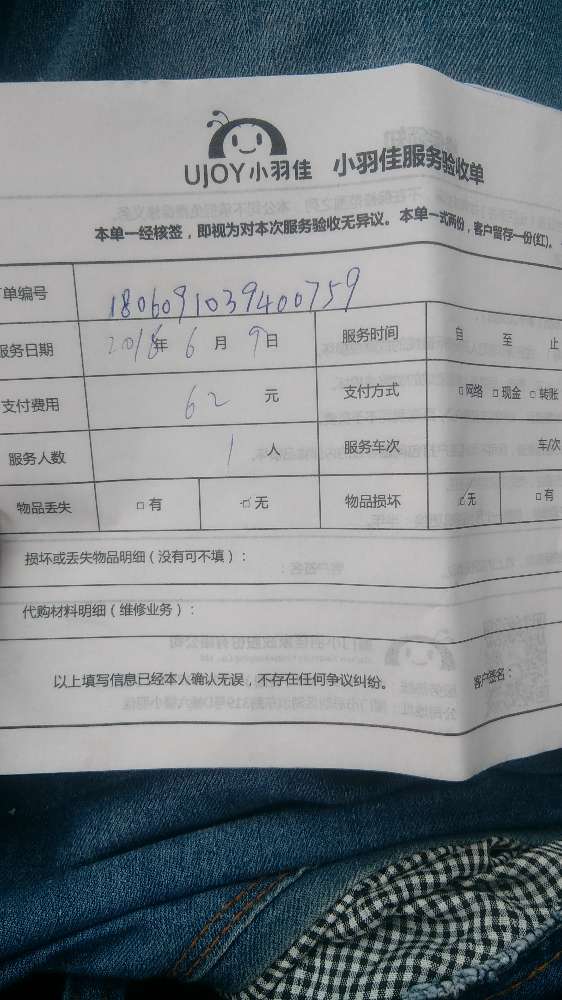 UJOY小羽佳 小羽佳服务验收单
本单一经核签，即视为对本次服务验收无异议。本单一式两份，客户留存一份(红)。
单编号 1806091039400759
服务日期 2018年 6月 9日 服务时间 自 至 止
支付费用 62 元 支付方式 □网络 □现金 □转账
服务人数 1 人 服务车次 车/次
物品丢失 □有 ☑无 物品损坏 ☑无 □有
损坏或丢失物品明细（没有可不填）：
代购材料明细（维修业务）：
以上填写信息已经本人确认无误，不存在任何争议纠纷。 客户签名：